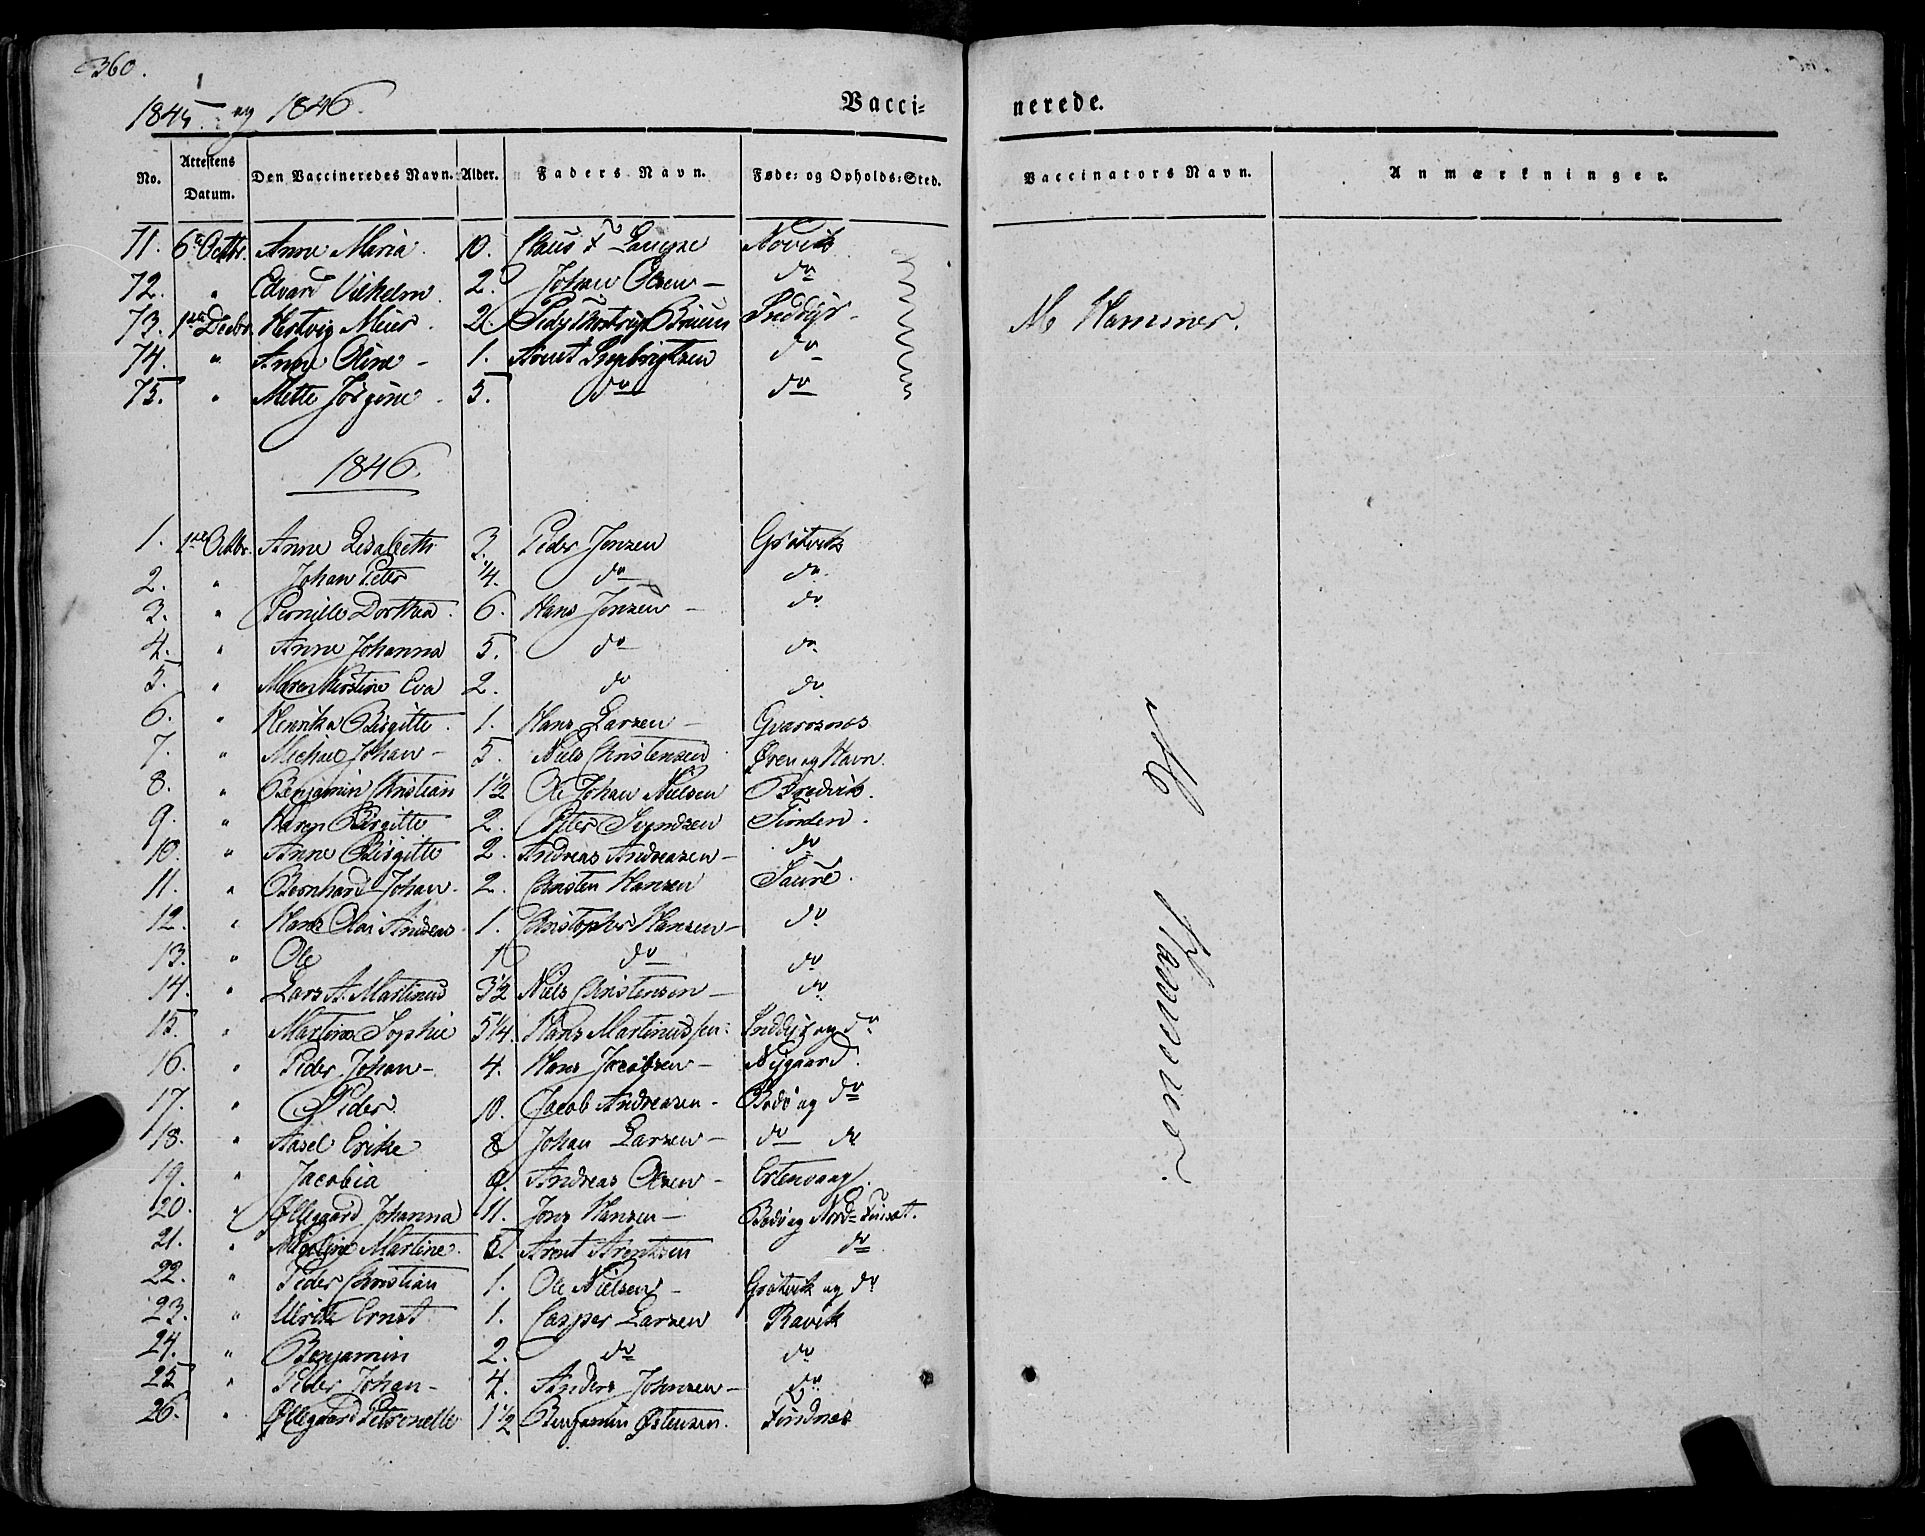 360.
1845 og 1846.
Vacci- nerede.
No. Attestens Datum. Den Vaccineredes Navn. Alder. Faders Navn. Føde- og Opholds-Sted. Vaccinators Navn. Anmærkninger.
71. 6te Octbr. Anne Maria. 10. Claus F Lampe Novik
72. " Edvard Vilhelm. 2. Johan Olsen – do
73. 1ste Decbr. Hertvig Meier. 2. Peder Bruun M Hammer.
74. " Anne Oline – 1. Arent Ingebrigtsen do
75. " Mette Jørgine. 5. do do
1846.
1. 1ste Octbr. Anne Lisabeth 3. Peder Jensen Grøtvik
2. " Johan Peter 1/4. do do.
3. " Pernille Dorthea. 6. Hans Jensen – do
4. " Anne Johanna 5. do do
5. " Maren Kirstine Eva 2. do do
6. " Henrika Birgitte. 1. Hans Larsen – Gvarosnes
7. " Michael Johan – 5. Niels Christensen Øren og Havn.
8. " Benjamin Christian 1 1/2 Ole Johan Nielsen Bredvik.
9. " Karen Birgitte 2. Peter Svendsen
10. " Anne Birgitte 2. Andreas Andreasen – do
11. " Bernhard Johan. 2. Christen Hansen
12. " Hans Olai Andreas 1. Christopher Hansen – do
13. " Ole 1 do do
14. " Lars A. Martinus 3 1/2 Niels Christensen – do
15. " Martina Sophie 5 1/4. Hans Martinussen. og do
16. " Peder Johan – 4. Hans Jacobsen – Nygaard.
17. " Peder. 10. Jacob Andreasen – Bodø og do
18. " Aasel Erike 8 Johan Larsen – do do
19. " Jacobia 9. Andreas Olsen – Ertenvaag.
20. " Øllegaard Johanna 11. Jens Hansen – Bodø og Nord-
21. " Martine. 5. Arent Arentsen do
22. " Peder Christian 1. Ole Nielsen – Grøtvik og do
23. " Ulrik Ernst 1. Casper Larsen Ravik
24. " Benjamin 2. do do
25 " Peder Johan – 4. Anders Johnsen – do
26. " Øllegaard Petronelle 1 1/2 Benjamin Østensen.
M Hammer